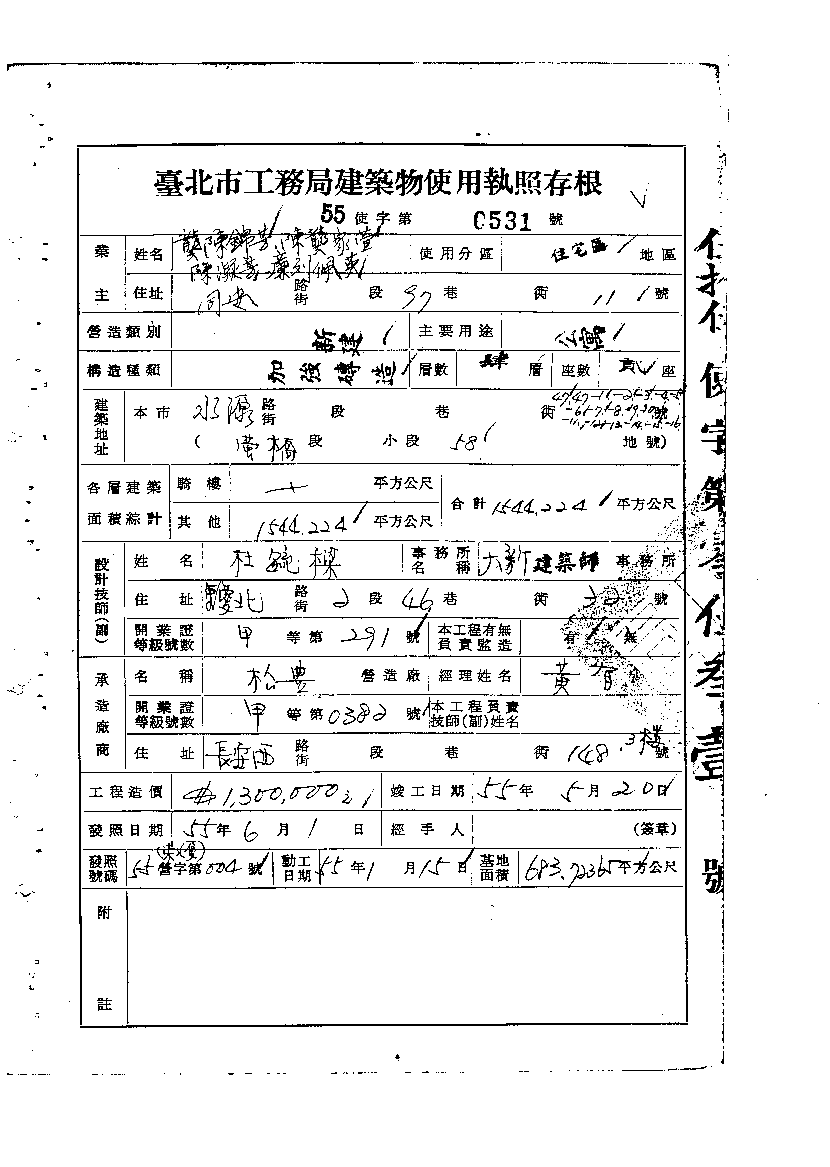 臺北市工務局建築物使用執照存根
55 使字第 0531 號
業主 姓名 使用分區 住宅區 地區
住址 同安 路街 段 97 巷 衖 11 號
營造類別 新建 主要用途 公寓
構造種類 加強磚造 層數 肆 層 座數 貳 座
建築地址 本市 水源 路街 段 巷 衖 號
( 螢橋 段 小段 58 地號)
各層建築面積綜計 騎樓 平方公尺 合計 1544.224 平方公尺
其他 1544.224 平方公尺
設計技師(副) 姓名 杜 樑 事務所名稱 大新 建築師 事務所
住址 北 路街 2 段 46 巷 衖 22 號
開業證等級號數 甲 等第 291 號 本工程有無負責監造 有 無
承造廠商 名稱 松豊 營造廠 經理姓名 黃
開業證等級號數 甲 等第 0382 號 本工程負責技師(副)姓名
住址 長安西 路街 段 巷 衖 148.3樓 號
工程造價 1,300,000 竣工日期 55 年 5 月 20 日
發照日期 55 年 6 月 1 日 經手人 (簽章)
發照號碼 55 營字第 004 號 動工日期 55 年 1 月 15 日 基地面積 683.7236 平方公尺
附註
使字第零伍叁壹號